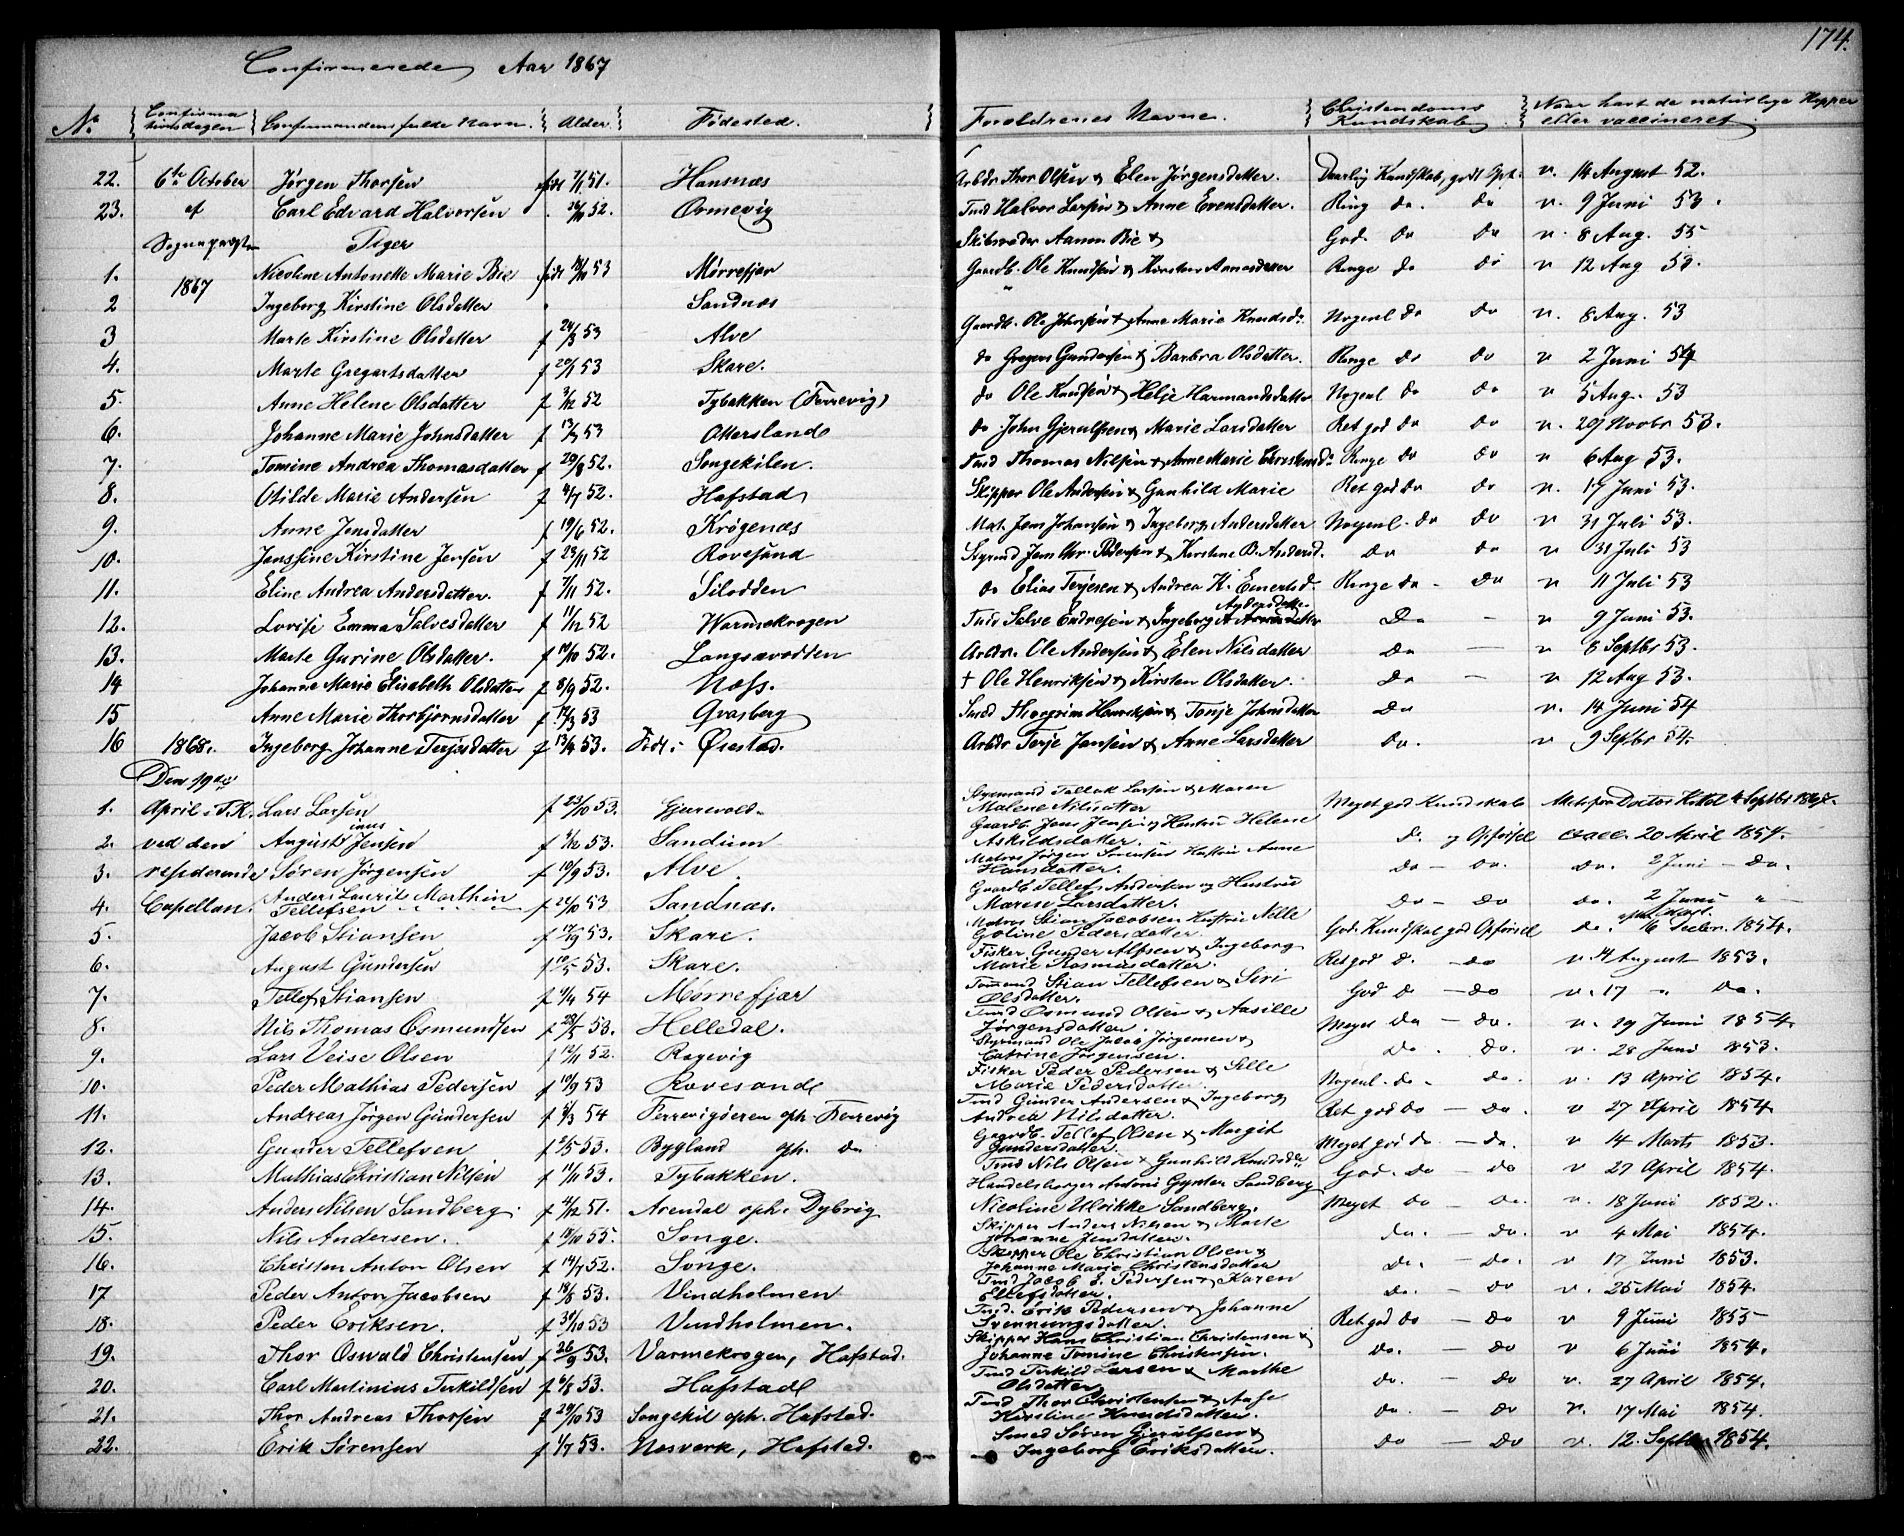 174.
Confirmerede Aar 1867
No Confirmationsdagen Confirmandens fulde Navn. Alder Fødested. Forældrenes Navne. Christendoms Kundskab Naar havt de naturlige Kopper eller vaccineret
22. 6te October Jørgen Thorsen født 7/1 51. Hansnæs Arbdr Thor Olsen & Elen Jørgensdatter. Daarlig Kundskab, godt v. 14 August 52.
23. af Carl Edvard Halvorsen 52. Ormevig Tmd Halvor Larsen & Anne Evensdatter. Ring do. do v. 9 Juni 53.
Sognepræsten Piger Skibsreder Aanon Bie & God. do do v. 8 Aug. 55
1. 1867 Nicoline Antonette Marie Bie født 53 Mørrefjær Gaardb. Ole Knudsen & Kirsten Aanonsdatter Ringe do do v 12 Aug 53.
2 Ingeborg Kirstine Olsdatter Sandnæs
3 Marte Kirstine Olsdatter f 24/3 53 Alve Gaardb. Ole Johnsen & Anne Marie Knudsdr Nogenl do do v. 8 Aug. 53
4. Marte Gregertsdatter f 20/1 53 Skare. do Gregers Gundersen & Barbra Olsdatter. Ringe do do v 2 Juni 54
5. Anne Helene Olsdatter f 3/12 52 Tybakken (Færrevig) do Ole Knudsen & Helje Harmandsdatter Nogenl do do v 5 Aug. 53
6. Johanne Marie Johnsdatter f 53 Ottersland do John Gjerulfsen & Marie Larsdatter Ret god do do v. 29 Novbr 53.
7. Tomine Andrea Thomasdatter f 29/8 52. Songekilen. Tmd Thomas Nilsen & Anne Marie Christensdr Ringe do do v 6 Aug 53.
8. Otilde Marie Andersen f 4/7 52. Hafstad Skipper Ole Andersen & Gunhild Marie Ret god do do v. 17 Juni 53.
9. Anne Jensdatter f 19/6 52. Krøgenæs Mat. Jens Johansen & Ingeborg Andersdatter Nogenl. do do v 31 Juli 53.
10. Jensine Kirstine Jensen f 23/11 52 Rovesund Styrmd Jens Chr. Pedersen & Kirstine B. Andersd. do do v 31 Juli 53
11. Eline Andrea Andersdatter. f 7/11 52. Silodden do Elias Terjesen & Andrea K. Einertsd. Ringe do - do v 11 Juli 53
12. Lovise Emma Salvesdatter f 11/12 52 Warmekrogen Tmd Salve Endresen & Ingeborg A Andersdatter Do - v 9 Juni 53.
13. Marte Gurine Olsdatter. f 52. Langsævodden Arbdr. Ole Andersen & Elen Nilsdatter do - v 8 Septbr 53.
14 Johanne Marie Elisabeth Olsdatter f 8/9 52. Næss. † Ole Henriksen & Kirsten Olsdatter. do - v 12 Aug 53.
15 Anne Marie Thorbjørnsdatter f 53 Gvasberg Smed Thorgrim Henriksen & Tonje Johnsdatter do v. 14 Juni 54
16 1868. Ingeborg Johanne Terjesdatter f 13/4 53. Født i Øiestad. Arbdr Terje Jensen & Anne Larsdatter do. v 9 Septbr 54.
Den 19de
1. April i T.K. Lars Larsen f 23/10 53. Gjerevold. Styrmand Tellak Larsen & Maren Malene Nilsdatter Meget god Kundskab Attest fra Doctor Kittel 4 Septbr 1867.
2. ved den Augustinius Jensen f 4/12 53. Sandum Gaardb. Jens Jensen og Hustru Helene Askildsdatter. do. og Opførsel vacc. 20 April 1854.
3. residerende Søren Jørgensen f 10/9 53. Alve. Matros Jørgen Sørensen Hustru Anne Hansdatter. do - do. do. 2 Juni - do.
4. Capellan. Anders Laurits Marthin Tellefsen f 24/10 53 Sandnæs. Gaardb Tellef Andersen og Hustru Maren Larsdatter. do - do do. 2 Juni "
5. Jacob Stiansen f 53. Skare. Matros Stian Jacobsen Hustru Nille Goline Pedersdatter. God. Kundskab god Opførsel do. 16 Decbr. 1854.
6. August Gundersen f 10/5 53. Skare. Fisker Gunder Alfsen & Ingeborg Marie Rasmusdatter. Ret god d. - do v 14 August 1853.
7. Tellef Stiansen f 4/4 54 Mørrefjær Tømmmd Stian Tellefsen & Siri Olsdatter. God do - do v. 17 " do.
8. Nils Thomas Osmundsen f 28/5 53. Helledal. Tmd Osmund Olsen & Aasille Jørgensdatter. Meget do - do. v. 19 Juni 1854.
9. Lars Veise Olsen f 12/11 52. Ragevig Styrmand Ole Jacob Jørgensen & Catrine Jørgensen. do. do. v. 28 Juni 1853.
10. Peder Mathias Pedersen f 19/9 53 Rovesand Fisker Peder Pedersen & Sille Marie Pedersdatter Nogenl. do - do. v. 13 April 1854.
11. Andreas Jørgen Gundersen f 4/3 54 Færrevigøeren oph. Færrevig Tmd Gunder Andersen & Ingeborg Andrea Nilsdatter. Ret god do - do. v 27 April 1854
12. Gunder Tellefsen f 2/5 53. Bygland oph. do Gaardb. Tellef Olsen & Margit Gundersdatter. Meget god do - do. v 4 Marts 1853.
13. Mathias Christian Nilsen f 11/11 53. Tybakken. Tmd Nils Olsen & Gunhild Knudsdr God. do - do v 27 April 1854.
14. Anders Nilsen Sandberg. f 4/12 51. Arendal oph. Dybvig Handelsborger Antoni Gunter Sandberg Nicoline Ulrikke Sandberg. Meget do - do. v. 18 Juni 1852.
15. Nils Andersen. f 19/10 55. Songe. Skipper Anders Nilsen & Marte Johanne Jensdatter. do. - do. v 4 Mai 1854.
16. Christen Anton Olsen f 14/7 52. Songe. Skipper Ole Christian Olsen & Johanne Marie Christensdatter do. - do. v 17 Juni 1853.
17 Peder Anton Jacobsen f 19/8 53. Vindholmen Tmd Jacob E. Pedersen & Karen Ellefsdatter. do. - do v. 26 Mai 1854.
18. Peder Eriksen. f 31/10 53 Vindholmen. Tmd. Erik Pedersen & Johanne Svenningsdatter. Ret god do - do v 9 Juni 1855
19. Thor Oswald Christensen f 26/9 53. Varmekrogen, Hafstad. Skipper Hans Christian Christensen & Johanne Tomine Christensen. do. - do v 6 Juni 1854.
20. Carl Martinius Terkildsen f 6/8 53. Hafstad Tmd Terkild Larsen & Marthe Olsdatter do. - do v. 27 April 1854.
21. Thor Andreas Thorsen f 29/10 53 Songekil oph. Hafstad. Tmd Thor Christensen & Aase Kirstine Knudsdatter. do. - do v. 17 Mai 1854.
22. Erik Sørensen f 1/7 53. Næsverk, Hafstad. Smed Søren Gjerulfsen & Ingeborg Eriksdatter. do - do v. 12 Septbr 1854.